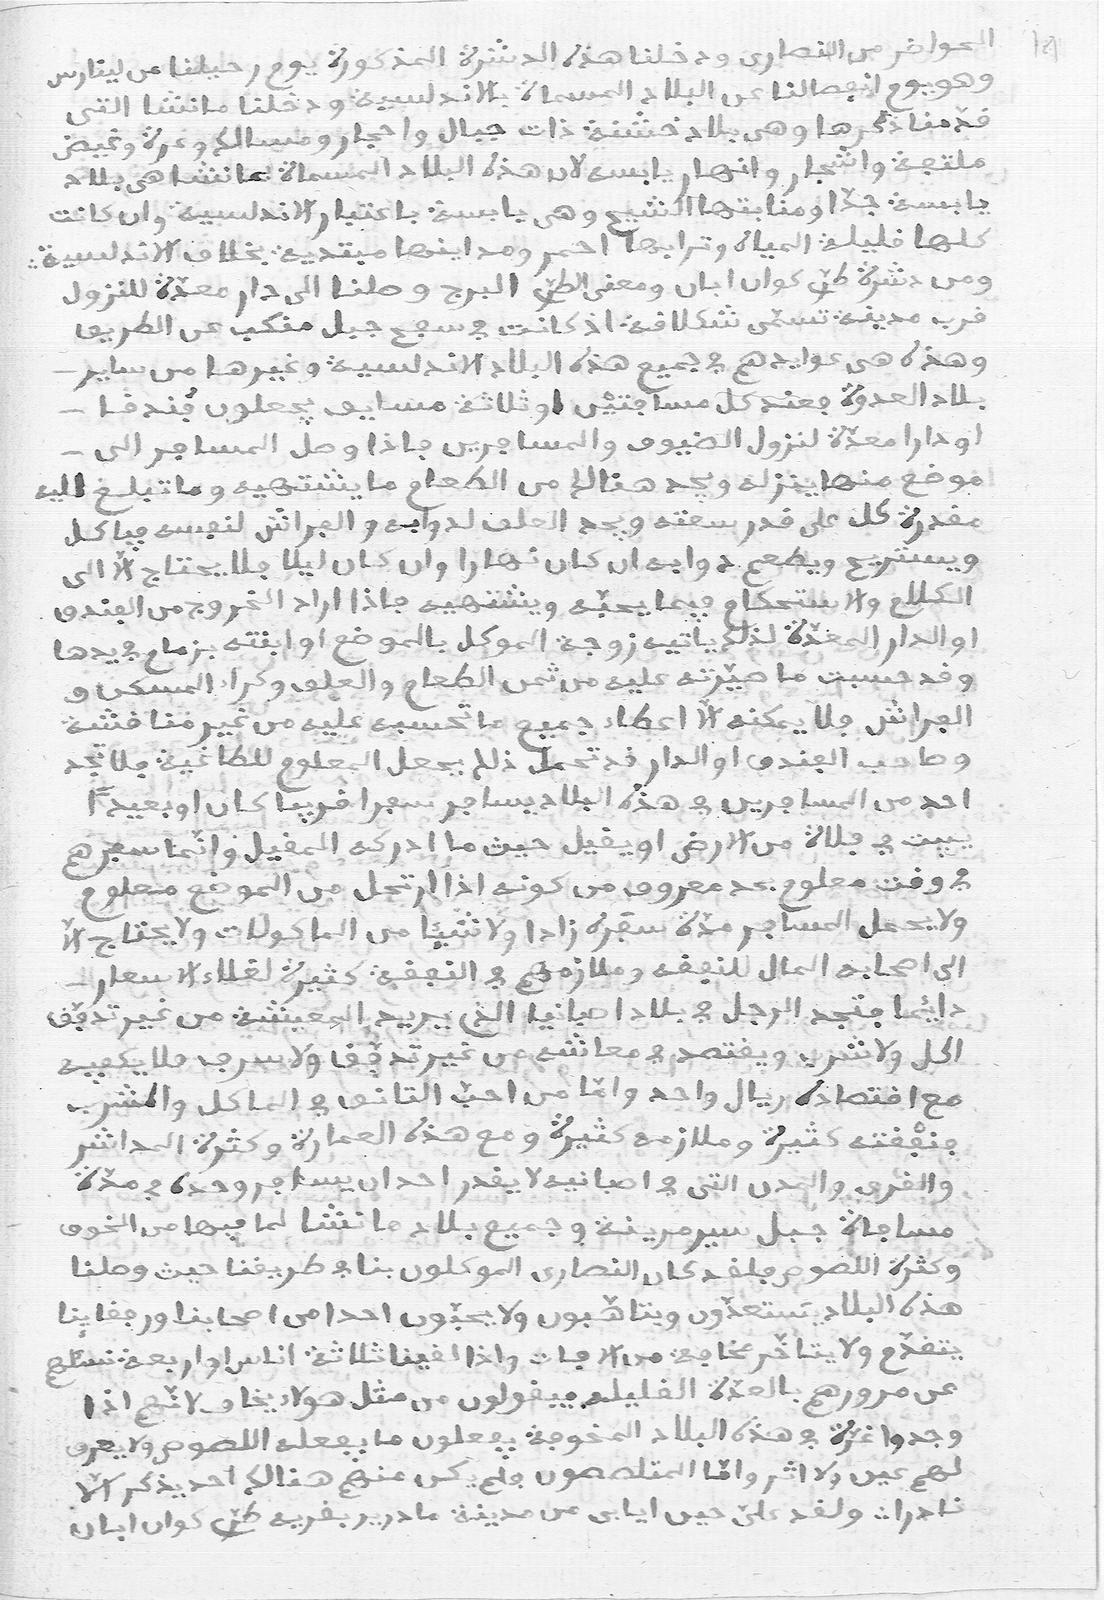 الحواضر من النصارى ودخلنا هذه الدشرة المذكورة يوم رحيلنا من لينارس
وهو يوم انفصالنا عن البلاد المسماة بالاندلسية ودخلنا مانشا التى
قدمنا ذكرها وهى بلاد خشنة ذات جبال واحجار ومسالك وعرة وغيض
ملتفة واشجار وانهار يابسه لان هذه البلاد المسماة بمانشا هى بلاد
يابسة جدّا ومنابتها الشيح وهى يابسة باعتبار الاندلسية وان كانت
كلها قليلة المياه وترابها احمر ومداينها مبتدية بخلاف الاندلسية
ومن دشرة طرّ كوان ابان ومعنى الطرّ البرج وصلنا الى دار معدّة للنزول
قرب مدينة تسمّى شكلانة اذ كانت في سفح جبل منكب عن الطريق
وهذه هى عوايدهم في جميع هذه البلاد الاندلسية وغيرها من ساير
بلاد العدوة فعند كل مسافتين او ثلاثة مسايف يجعلون فندقا
او دارا معدّة لنزول الضيوف والمسافرين فاذا وصل المسافر الى
موضع منها ينزله ويجد هنالك من الطعام ما يشتهيه وما تبلغ اليه
مقدرة كل على قدر سعته ويجد العلف لدوابه والفراش لنفسه فياكل
ويستريح ويطعم دوابه ان كان نهارا وان كان ليلا فلا يحتاج الّا الى
الكلام والاستحكام فيما يحبّه ويشتهيه فاذا اراد الخروج من الفندق
او الدار المعدّة لذلك ياتيه زوجة الموكل بالموضع او ابنته بزمام في يدها
وقد حسبت ما صيّرته عليه من ثمن الطعام والعلف وكراء المسكن و
الفراش فلا يمكنه الّا اعطاء جميع ما تحسبه عليه من غير مناقشة
وصاحب الفندق او الدار قد تحمل ذلك بجعل المعلوم للطاغية فلا تجد
احد من المسافرين في هذه البلاد يسافر سفرا قريبا كان او بعيدا
يبيت في فلاة من الارض او يقيل حيث ما ادركه المقيل وانّما سفرهم
في وقت معلوم بحد معروف من كونه اذا ارتحل من الموضع معلوم
ولا يحمل المسافر مدّة سفره زادا ولا شيئا من الماكولات ولا يحتاج الّا
الى اصحابه المال للنفقه وملازمهم في النفقة كثيرة لغلاء الاسعار
دائما فتجد الرجل في بلاد اصبانيا الذى يريد المعيشة من غير تدقّق
اكل ولا شرب ويقتصد في معاشه من غير تدقّق ولا سرف فلا يكفيه
مع اقتصاده ريال واحد وامّا من احبّ التانق في الماكل والمشرب
فنفقته كثيرة وملازمه كثيرة ومع هذه العمارة وكثرة المداشر
والقرى والمدن التى في اصبانيه لا يقدر احد ان يسافر وحده في مدّة
مسافة جبل سيرمرينة وجميع بلاد مانشا لما فيها من الخوف
وكثرة اللصوص فلقد كان النصارى الموكلون بنا في طريقنا حيث وصلنا
هذه البلاد يستعدّون ويتاهّبون ولا يحبّون احدا من اصحابنا ورفقاينا
يتقدّم ولا يتاخّر مخافة من الافات واذا لقينا ثلاثة اناس او اربعة نسئلهم
عن مرورهم بالعدّة القليله فيقولون من مثل هولاء يخاف لانّهم اذا
وجدوا غرّة في هذه البلاد المخوفة يفعلون ما يفعله اللصوص ولا يعرف
لهم عين ولا اثر وامّا المتلصصون فلم يكن منهم هنالك احد يذكر الّا
نادرات ولقد علىّ حين ايابى من مدينة مادريد بقريه طرّ كوان ابان